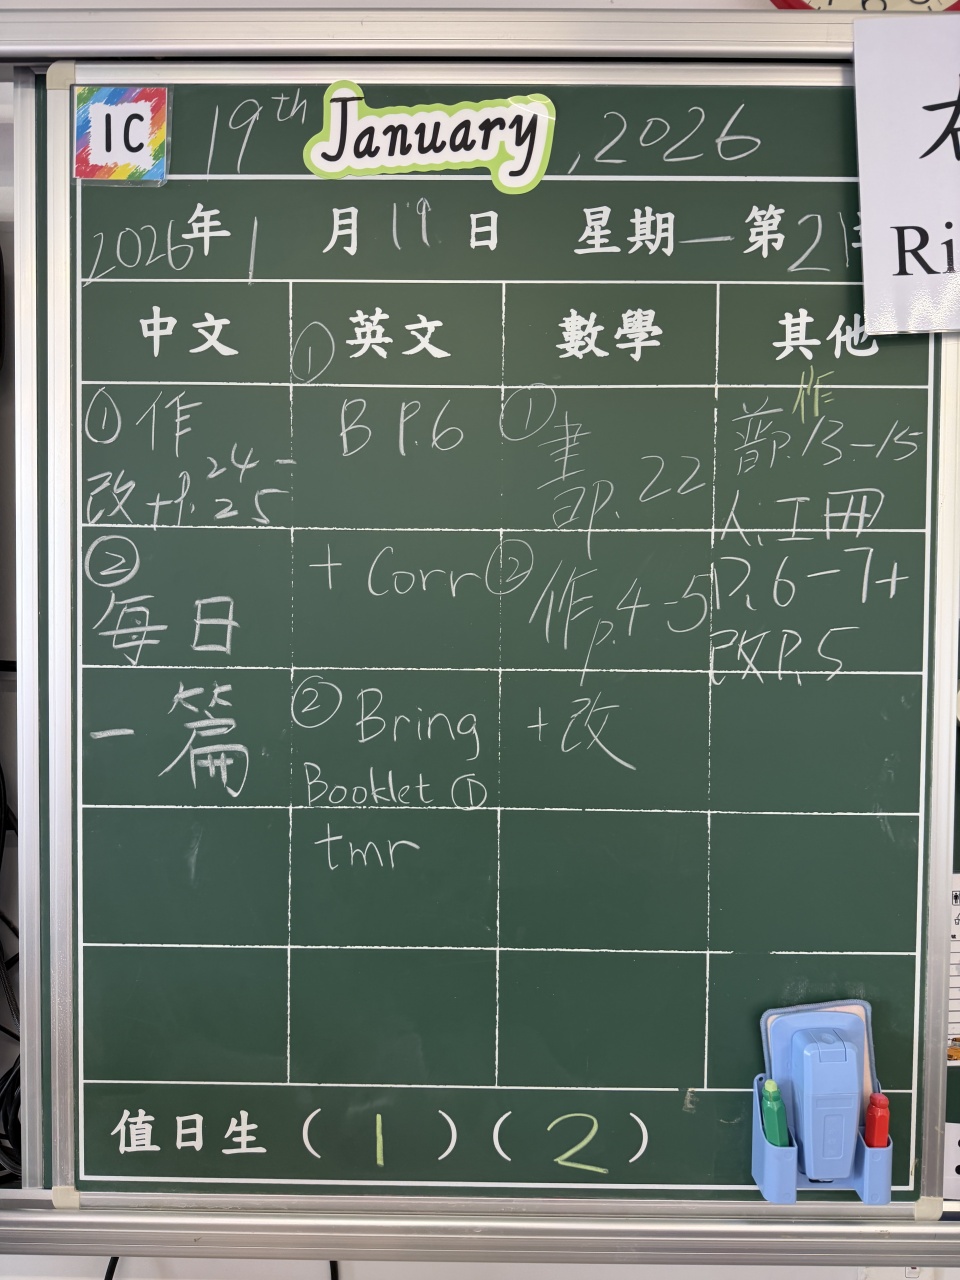 1C
19th January, 2026
2026年1月19日 星期一 第21
中文
① 英文
數學
其他
① 作
改+P.24-25
②
每日
一篇
B P.6
+ Corr
② Bring
Booklet ①
tmr
① 書
P.22
② 作
p.4-5
+改
作
P.13-15
人工冊
P.6-7+
改P.5
值日生(1)(2)
Ri